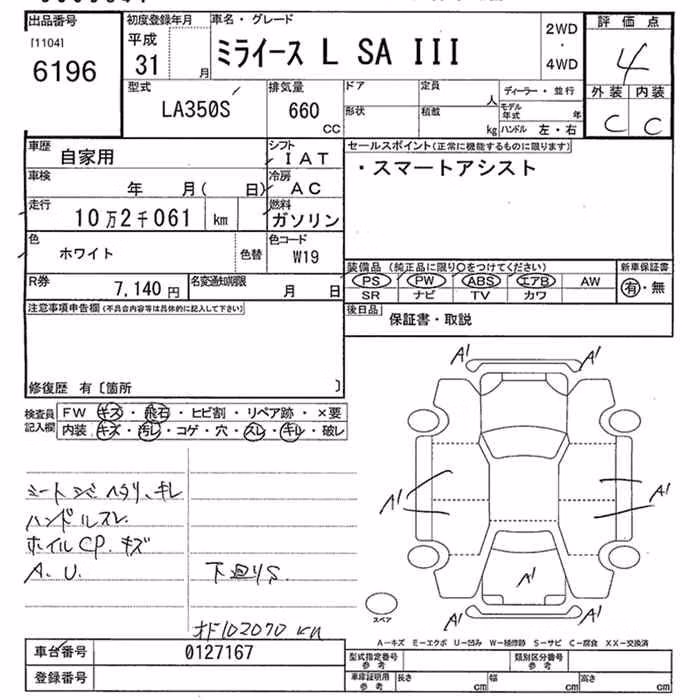 出品番号
[1104]
6196
初度登録年月
平成
31 月
車名・グレード
ミライース L SA III
2WD
・
4WD
評価点
4
外装 内装
C C
型式
LA350S
排気量
660
CC
ドア 定員 人
形状 積載 kg
ディーラー・並行
モデル年式 年
ハンドル 左・右
車歴
自家用
シフト
IAT
車検
年 月( 日)
冷房
AC
走行
10万2千061 km
燃料
ガソリン
色
ホワイト
色替
色コード
W19
R券
7,140 円
名変通知期限
月 日
セールスポイント(正常に機能するものに限ります)
・スマートアシスト
装備品 (純正品に限り○をつけてください)
PS PW ABS エアB AW
SR ナビ TV カワ
新車保証書
有・無
後日品
保証書・取説
注意事項申告欄(不具合内容等は具体的に記入して下さい)
修復歴 有〔箇所 〕
検査員記入欄
FW キズ・飛石・ヒビ割・リペア跡・×要
内装 キズ・汚レ・コゲ・穴・スレ・キレ・破レ
シートシミ ヘタリ、キレ
ハンドルスレ
ホイルCP. キズ
A. U.
下廻りS
オド102070 km
A1 A1
A1 A1
A1
A1 A1
スペア
A-キズ E-エクボ U-凹み W-補修跡 S-サビ C-腐食 XX-交換済
車台番号
0127167
登録番号
型式指定番号
参考
類別区分番号
参考
車庫証明用
参考
長さ cm 幅 cm 高さ cm